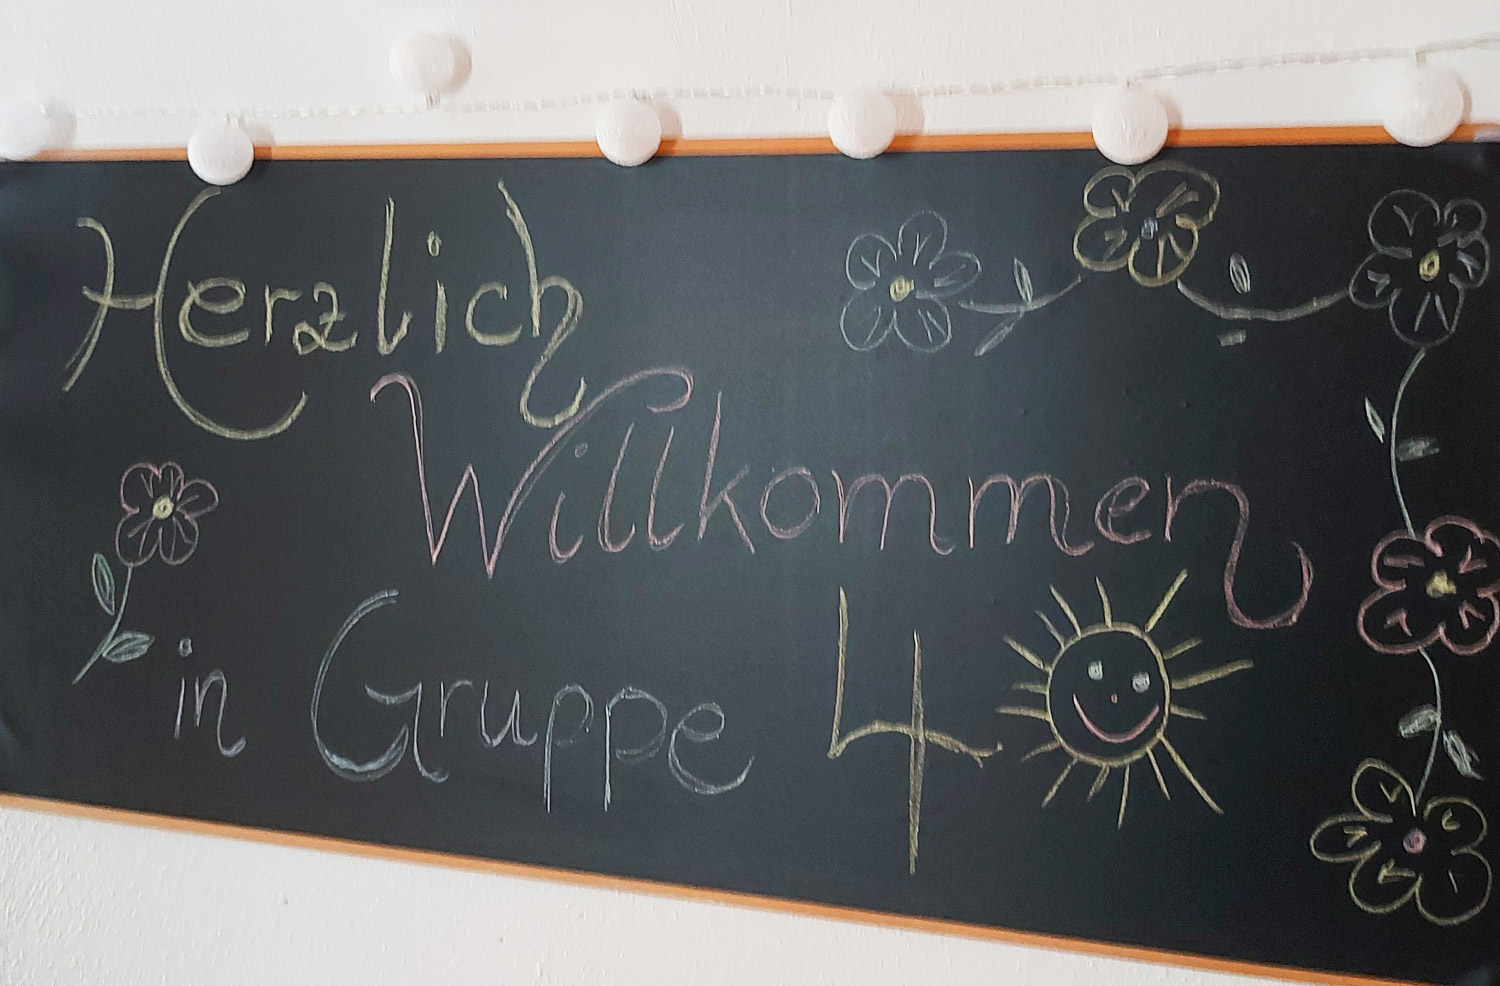 Herzlich
Willkommen
in Gruppe 4